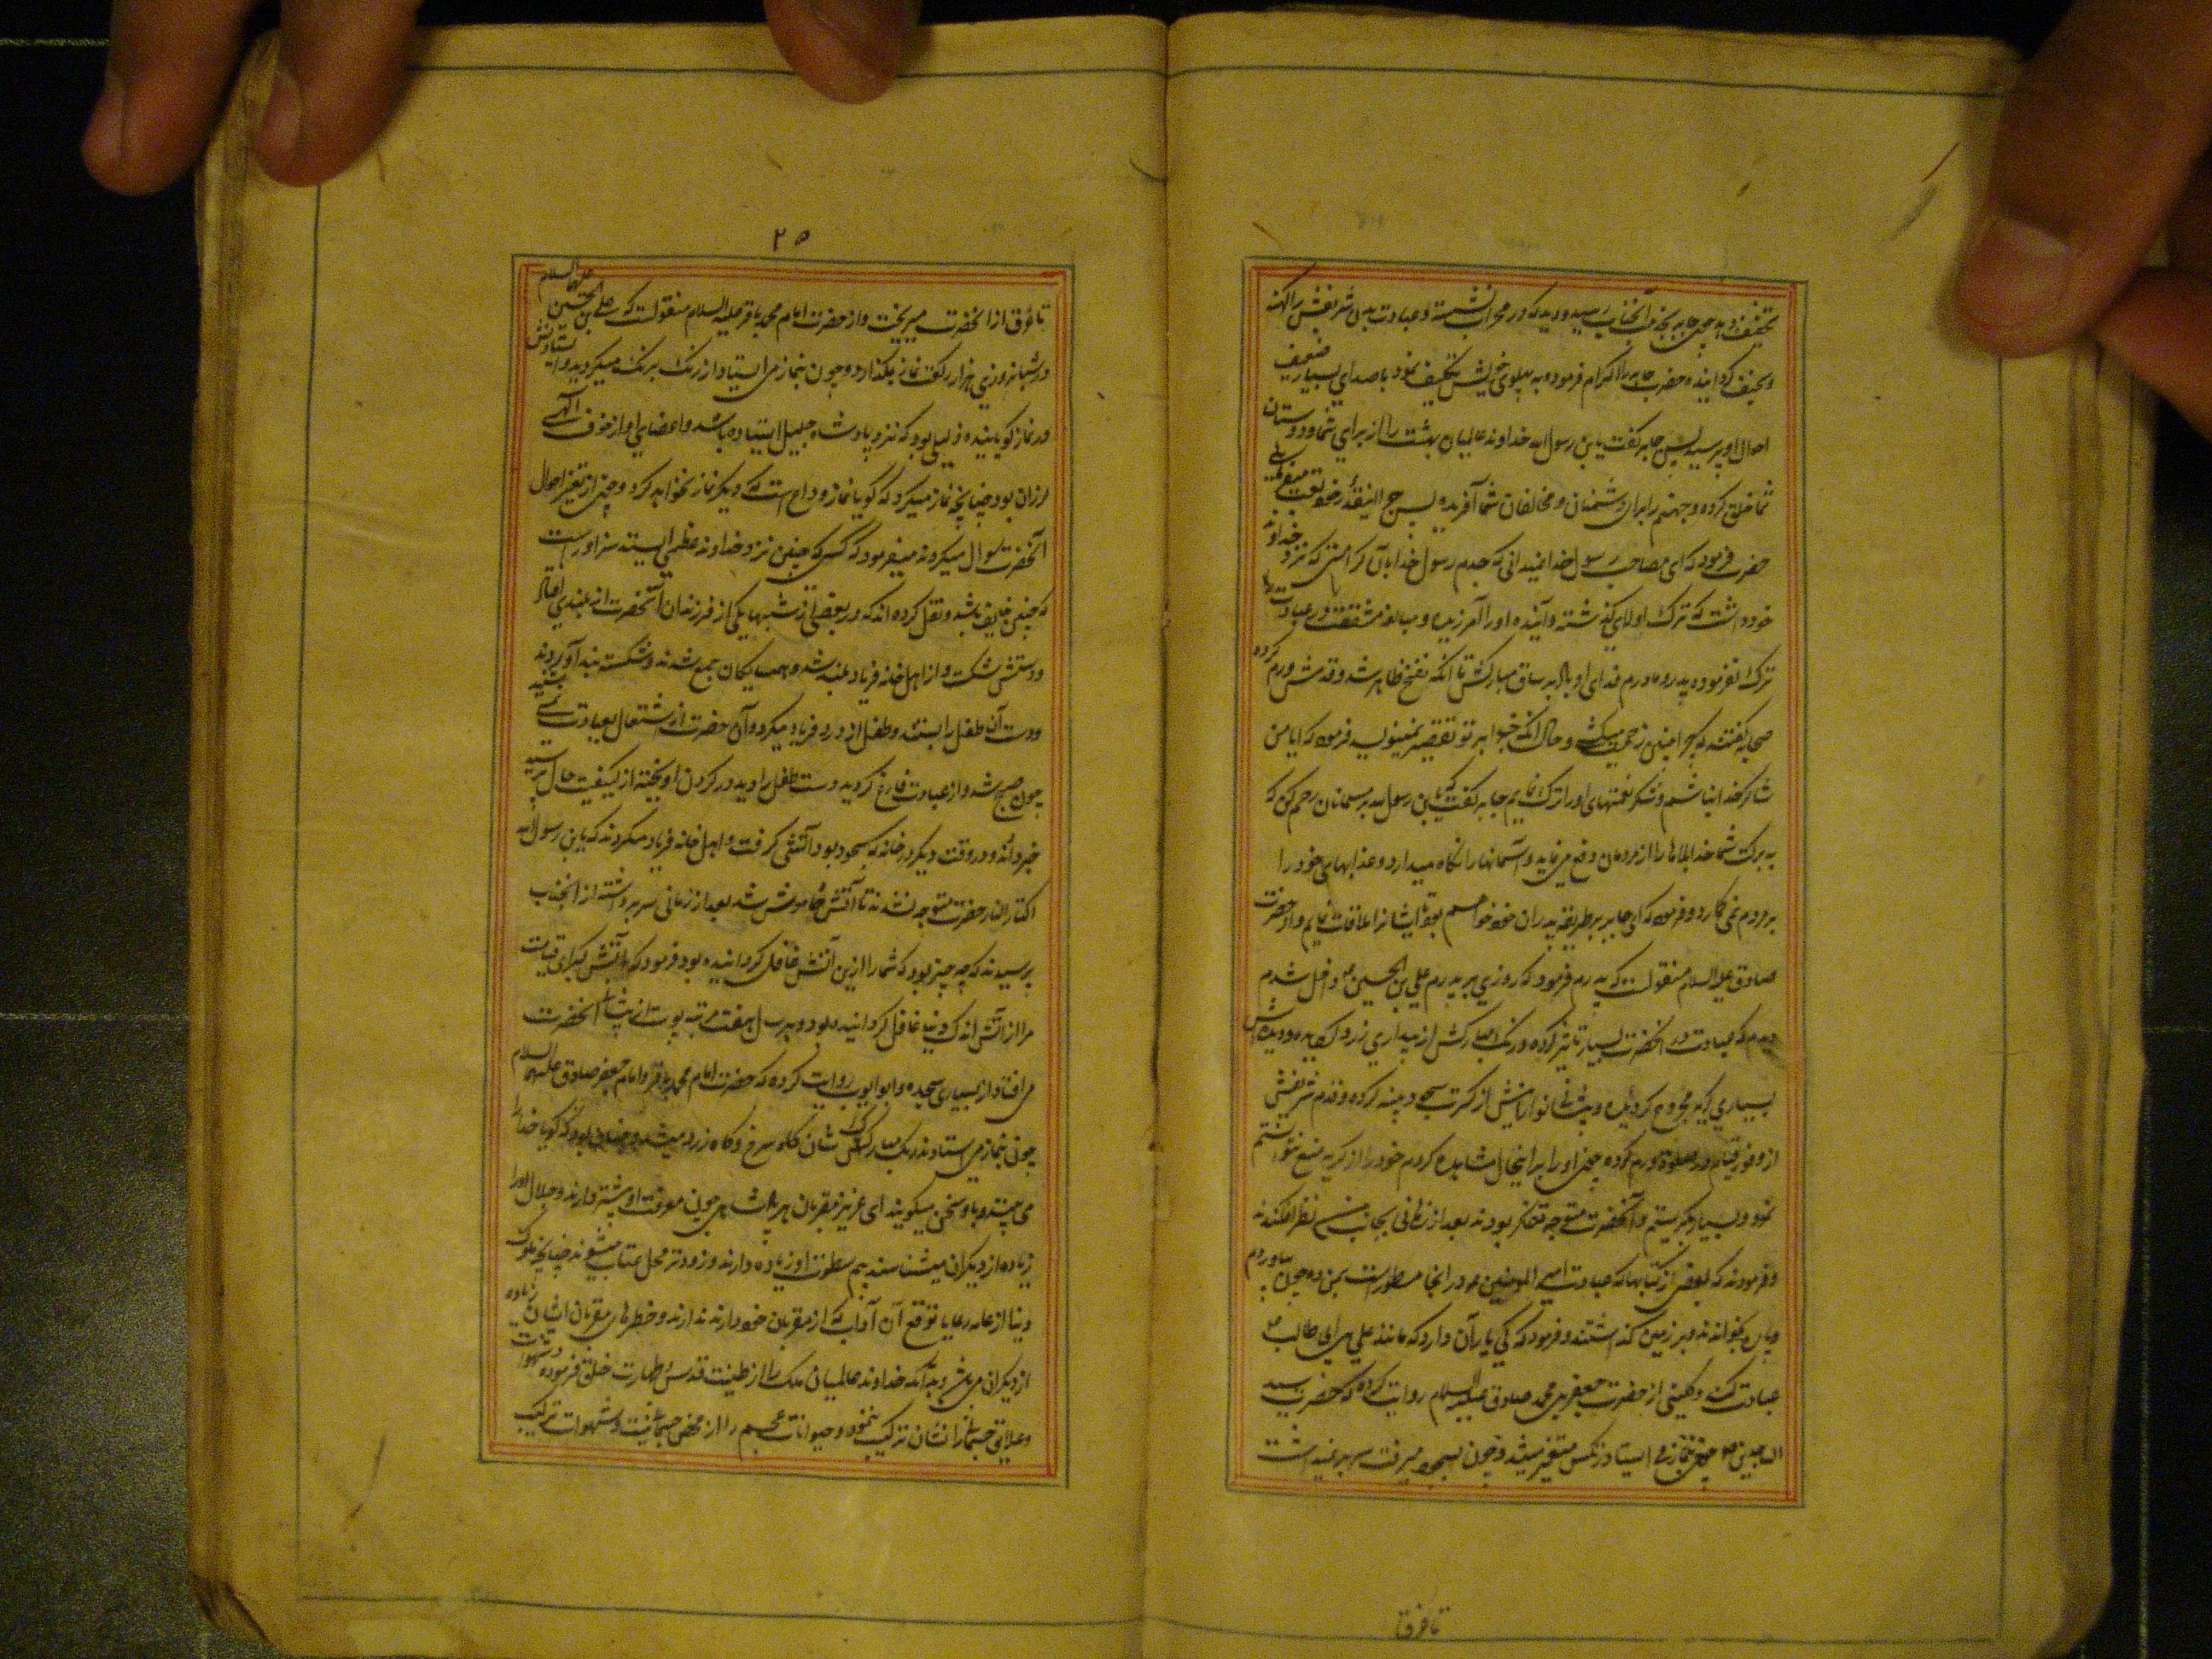 تخفیف دهد چون جابر بخدمت آنجناب رسید دید که در محراب نشسته و عبادت بدن شریفش را کهنه
و نحیف گردانیده حضرت جابر را اکرام فرموده به پهلوی خویش تکلیف نمود با صدای بسیار ضعیف
احوال او پرسید پس جابر گفت یابن رسول الله خداوند عالمیان بهشت را از برای شما و دوستان
شما خلق کرده و جهنم را برای دشمنان و مخالفان شما آفریده پس چرا اینقدر خود تعب میفرمایی
حضرت فرمود که ای مصاحب رسول خدا نمیدانی که جدم رسول خدا با آن کرامتی که نزد خداوند
خود داشت که ترک اولای گذشته و آینده او را آمرزیده و مبالغه مشقت در عبادت را
ترک نفرموده پدر و مادرم فدای او باد بر ساق مبارکش تا آنکه نفخ ظاهر شد و قدمش ورم کرده
صحابه گفتند که چرا چنین زحمت میکشی و حال آنکه خدا بر تو تقصیر نمینویسد فرمود که ایا من
شاکر خدا نباشم و شکر نعمتهای او را ترک نمایم جابر گفت که یابن رسول الله بر مسلمانان رحم کن که
به برکت شما خدا بلاها را از مردمان دفع می نماید و آسمانها را نگاه میدارد و عذابهای خود را
بر مردم نمی گمارد و فرمود که ای جابر بر طریقه پدران خود خواهم بود تا ایشانرا ملاقات نمایم و از حضرت
صادق علیه السلام منقولست که پدرم فرمود که روزی بر پدرم علی بن الحسین ع داخل شدم
دیدم که عبادت در آنحضرت بسیار تاثیر کرده و رنک مبارکش از بیداری زرد گردیده و دیده اش
بسیاری گریه مجروح گردیده و پیشانی نورانیش از کثرت سجود پینه کرده و قدم شریفش
از وفور قیام در صلوة ورم کرده چون او را بر اینحال مشاهده کردم خود را از گریه منع نتوانستم
نمود و بسیار بگریستم و آنحضرت متوجه تفکر بودند بعد از زمانی بجانب من نظر افکندند
و فرمودند که بعضی از کتابها که عبادت امیر المومنین ع در انجا مسطور است بمن ده چون بیاوردم
و پاره بخواندند و بر زمین گذاشتند و فرمود که کی یارای آن دارد که مانند علی بن ابی طالب ع
عبادت کند و کلینی از حضرت جعفر بن محمد صادق علیه السلام روایت کرده که حضرت سید
الساجدین ع چون بنماز می ایستاد رنکش متغیر میشد و چون بسجود میرفت سر بر نمیداشت
تا عرق
۲۵
تا عرق از آنحضرت میریخت و از حضرت امام محمد باقر علیه السلام منقولست که علی بن الحسین علیهما السلام
در شبانروزی هزار رکعت نماز میگذارد و چون بنماز می ایستاد از رنک برنک میگردید و ایستادنش
در نماز گویا بنده ذلیلی بود که نزد پادشاه جلیل ایستاده باشد و اعضای او از خوف الهی
لرزان بود چنانچه نماز میکرد که گویا نماز وداع است که دیگر نماز نخواهد کرد و چون از تغیر احوال
آنحضرت سوال میکردند میفرمود که کسی که چنین نزد خداوند عظیمی ایستد سزاوار است
که چنین خایف باشد و نقل کرده اند که در بعضی از شبها یکی از فرزندان آنحضرت از بلندی افتاد
و دستش شکست و از اهل خانه فریاد بلند شد و همسایگان جمع شدند و شکسته بند آوردند
و دست آن طفل را بستند و طفل از درد فریاد میکرد و آن حضرت از اشتغال بعبادت نمی شنید
چون صبح شد و از عبادت فارغ گردید دست طفل را دید در گردن آویخته از کیفیت حال پرسید
خبر دادند و در وقت دیگر در خانه که بسجود بود آتشی گرفت و اهل خانه فریاد میکردند که یابن رسول الله
النار النار حضرت متوجه نشدند تا آتش خاموش شد بعد از زمانی سر برداشته از آنجناب
پرسیدند که چه چیز بود که شما را ازین آتش غافل گردانیده بود فرمود که آتش کبرای قیامت
مرا از آتش اندک دنیا غافل گردانیده بود و هر سال هفت مرتبه پوست از پیشانی آنحضرت
می افتاد از بسیاری سجده و ابو ایوب روایت کرده که حضرت امام محمد باقر و امام جعفر صادق علیهما السلام
چون بنماز می ایستادند رنک مبارک ایشان گاه سرخ و گاه زرد میشد و چنان بود که گویا خدا را
می بینند و با او سخن میگویند ای عزیز مقربان هر پادشاهی چون معرفت او بیشتر دارند و جلال او را
زیاده از دیگران میشناسند بیم سطوت او زیاده دارند و زودتر محل عتاب میشوند چنانچه ملوک
دنیا از عامه رعایا توقع آن آداب که از مقربان خود دارند ندارند و خطرهای مقربان ایشان زیاده
از دیگران می باشد و بدانکه خداوند عالمیان ملک را از طینت قدس و طهارت خلق فرموده و شهوات
و علایق جسمانی را نشان ترکیب ننمود و حیوانات عجم را از محض جسمانیت و شهوات ترکیب